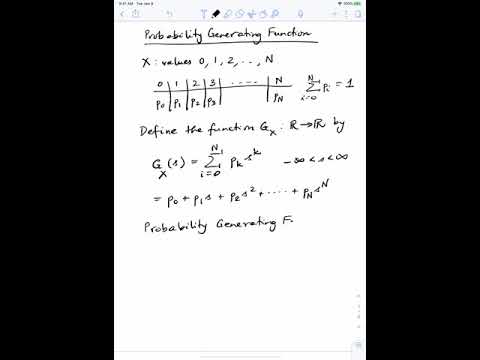 9:41 AM Tue Jan 9
Probability Generating Function
X : values 0, 1, 2, .., N
0 | 1 | 2 | 3 | ----- | N
p₀ | p₁ | p₂ | p₃ | | p_N
∑_{i=0}^{N} pᵢ = 1
Define the function G_X : ℝ→ℝ by
G_X(s) = ∑_{i=0}^{N} p_k s^k   -∞ < s < ∞
= p₀ + p₁s + p₂s² + ---- + p_N s^N
Probability Generating F.